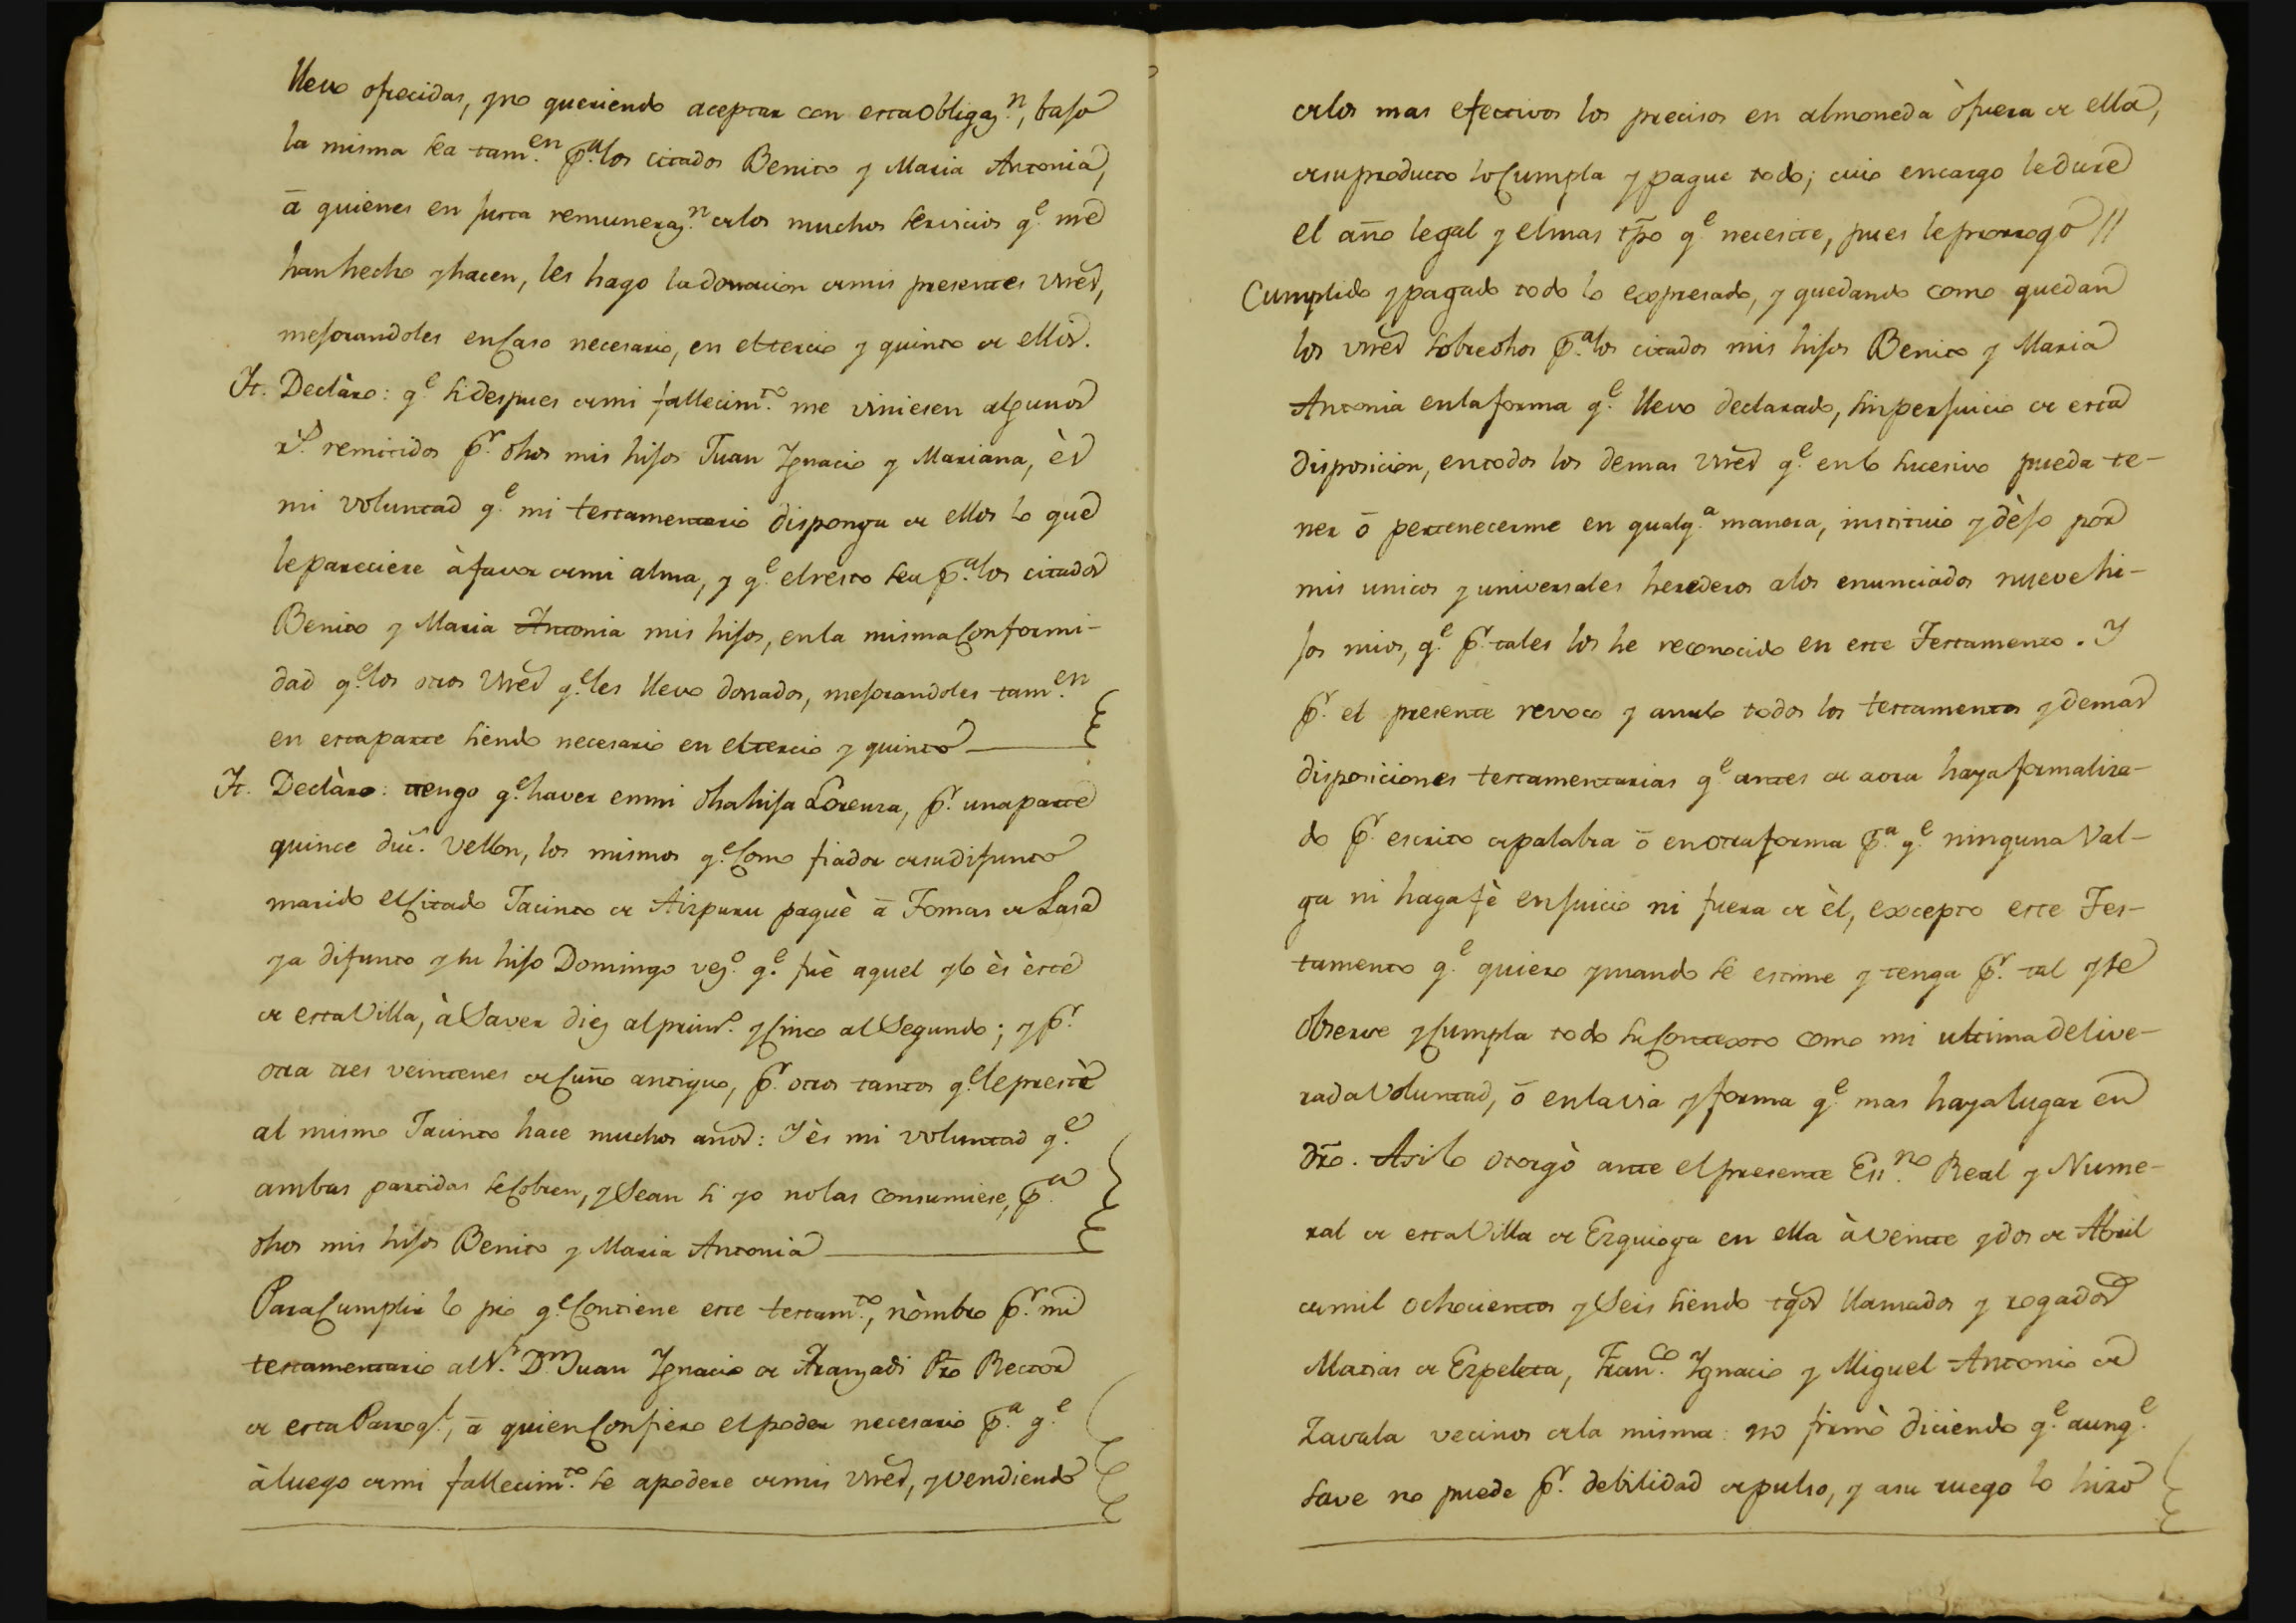 llevo ofrecidas, y no queriendo aceptar con esta obligaz.n, bajo
la misma sea tam.en p.a los citados Benito y Maria Antonia,
ā quienes en justa remuneraz.n de los muchos servicios q.e me
han hecho y hacen, les hago la donacion de mis presentes vnēs,
mejorandoles en caso necesario, en el tercio y quinto de ellos.
It. Declàro: q.e si despues de mi fallecim.to me viniesen algunos
r.s remitidos p.r dhos mis hijos Juan Ignacio y Mariana, ès
mi voluntad q.e mi testamentario disponga de ellos lo que
le pareciere à favor de mi alma, y q.e el resto sea p.a los citados
Benito y Maria Antonia mis hijos, en la misma conformi-
dad q.e los otros vnēs q.e les llevo donados, mejorandoles tam.en
en esta parte siendo necesario en el tercio y quinto
It. Declàro: tengo q.e haver en mi dha hija Lorenza, p.r una parte
quince duc.s vellon, los mismos q.e como fiador de su difunto
marido el citado Jacinto de Aizpuru paguè ā Tomas de Lasa
ya difunto y su hijo Domingo vez.o q.e fuè aquel y lo ès èste
de esta Villa, à Saver diez al prim.o y cinco al Segundo; y p.r
otra tres veintenes de cuño antiguo, p.r otros tantos q.e le prestè
al mismo Jacinto hace muchos años: Y ès mi voluntad q.e
ambas partidas se cobren, y Sean si yo no las consumiese, p.a
dhos mis hijos Benito y Maria Antonia
Para cumplir lo pio q.e contiene este testam.to, nòmbro p.r mi
testamentario al S.r D.n Juan Ignacio de Aranzadi Pro Rector
de esta Parroq.l, ā quien confiero el poder necesario p.a q.e
à luego de mi fallecim.to se apodere de mis vnēs, y vendiendo
de los mas efectivos los precisos en almoneda ò fuera de ella,
de su producto lo cumpla y pague todo; cuio encargo le dure
el año legal y el mas tpo q.e necesite, pues le prorrogo //
Cumplido y pagado todo lo expresado, y quedando como quedan
los vnēs sobredhos p.a los citados mis hijos Benito y Maria
Antonia en la forma q.e llevo declarado, sin perjuicio de esta
disposicion, en todos los demas vnēs q.e en lo sucesivo pueda te-
ner ō pertenecerme en qualq.a manera, instituio y dèjo por
mis unicos y universales herederos a los enunciados nueve hi-
jos mios, q.e p.r tales los he reconocido en este Testamento. Y
p.r el presente revoco y anulo todos los testamentos y demas
disposiciones testamentarias q.e antes de aora haya formaliza-
do p.r escrito de palabra ō en otra forma p.a q.e ninguna val-
ga ni haga fè en juicio ni fuera de èl, excepto este Tes-
tamento q.e quiero y mando se estime y tenga p.r tal y se
observe y cumpla todo su contexto como mi ultima delive-
rada voluntad, ō en la via y forma q.e mas haya lugar en
dro. Asi lo otorgò ante el presente Es.no Real y Nume-
ral de esta Villa de Ezquioga en ella à veinte y dos de Abril
de mil ochocientos y Seis siendo tgos llamados y rogados
Matias de Ezpeleta, Fran.co Ignacio y Miguel Antonio de
Zavala vecinos de la misma: no firmò diciendo q.e aunq.e
save no puede p.r debilidad de pulso, y a su ruego lo hizo